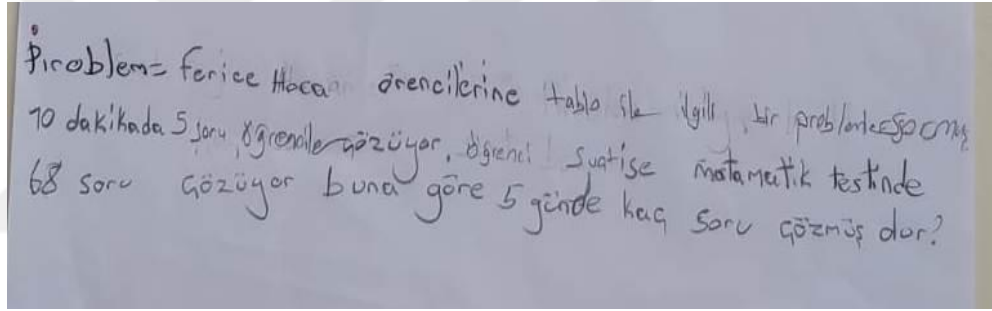 Piroblem= ferice Hocam örencilerine tablo ile ilgili bir problemler
10 dakikada 5 soru öğrenciler çözüyor, öğrenci Suatise matamatik testinde
68 soru çözüyor buna göre 5 günde kaç soru çözmüş dür?